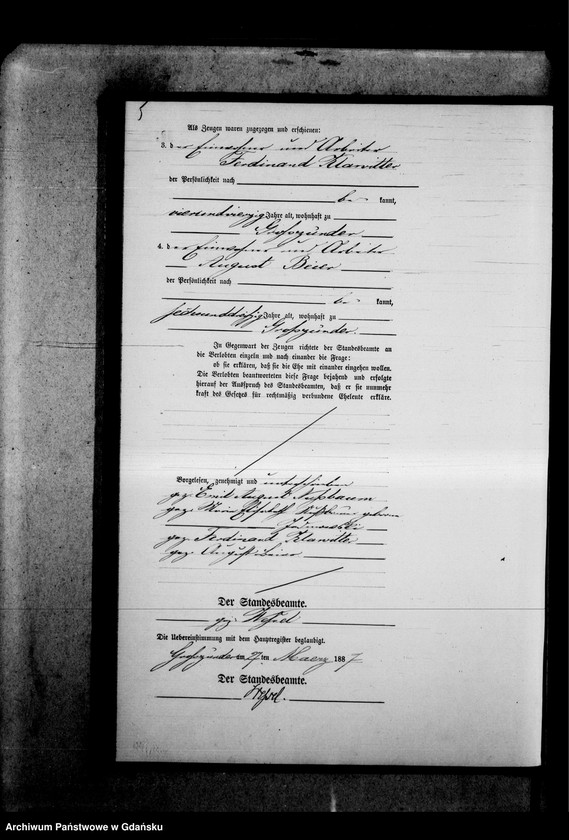 Als Zeugen waren zugezogen und erschienen:
3. der Einwohner und Arbeiter
Ferdinand Klawitter
der Persönlichkeit nach
be kannt,
vierundvierzig Jahre alt, wohnhaft zu
Großzünder
4. der Einwohner und Arbeiter
August Beier
der Persönlichkeit nach
be kannt,
sechsunddreißig Jahre alt, wohnhaft zu
Großzünder.
In Gegenwart der Zeugen richtete der Standesbeamte an
die Verlobten einzeln und nach einander die Frage:
ob sie erklären, daß sie die Ehe mit einander eingehen wollen.
Die Verlobten beantworteten diese Frage bejahend und erfolgte
hierauf der Ausspruch des Standesbeamten, daß er sie nunmehr
kraft des Gesetzes für rechtmäßig verbundene Eheleute erkläre.
Vorgelesen, genehmigt und unterschrieben
gez. Emil August Nußbaum
gez. Nußbaum geborne
gez. Ferdinand Klawitter
gez. August Beier
Der Standesbeamte.
gez. Wessel
Die Uebereinstimmung mit dem Hauptregister beglaubigt.
Großzünder am 7 ten Maerz 1887
Der Standesbeamte.
Wessel.
Archiwum Państwowe w Gdańsku